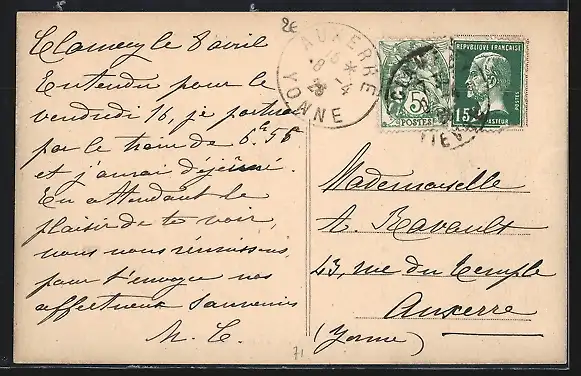 Clamecy le 8 avril
Entendu pour le
vendredi 16, je partirai
par le train de 6h 56
et j'aurai déjeûné.
En attendant le
plaisir de te voir,
nous nous réunissons
pour t'envoyer nos
affectueux souvenirs
M. C.
2E
AUXERRE
YONNE
8 -4
5
POSTES
REPUBLIQUE FRANÇAISE
POSTES
15c
PASTEUR
Mademoiselle
A. Ravault
43, rue du Temple
Auxerre
(Yonne)
71